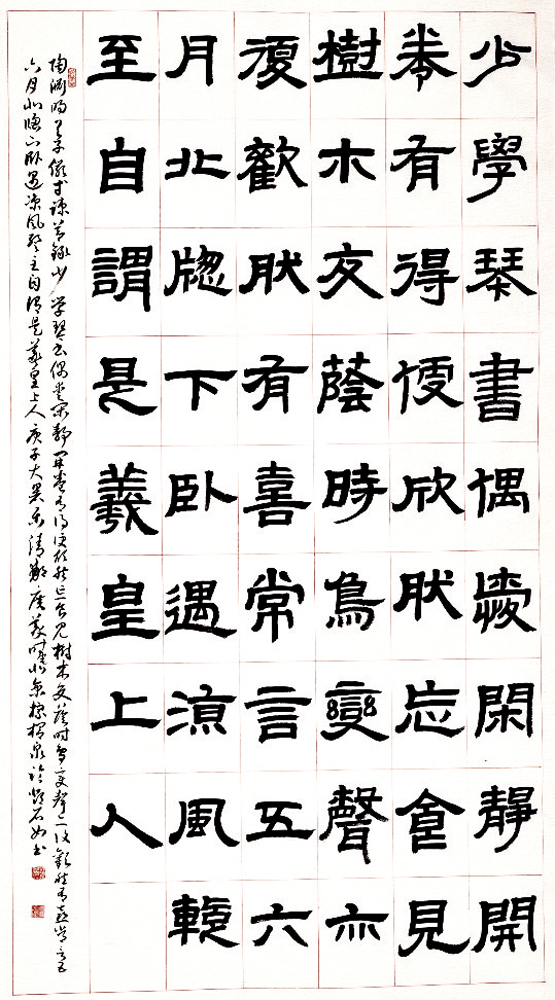 少學琴書偶愛閑靜開
卷有得便欣肰忘食見
樹木交蔭時鳥變聲亦
復歡肰有喜常言五六
月北牕下臥遇涼風暫
至自謂是羲皇上人
陶渊明与子俨等疏节录少学琴书偶爱闲静开卷有得便欣然忘食见树木交荫时鸟变声亦复欢然有喜尝言五
六月北牕下卧遇凉风暂至自谓是羲皇上人庚子大暑